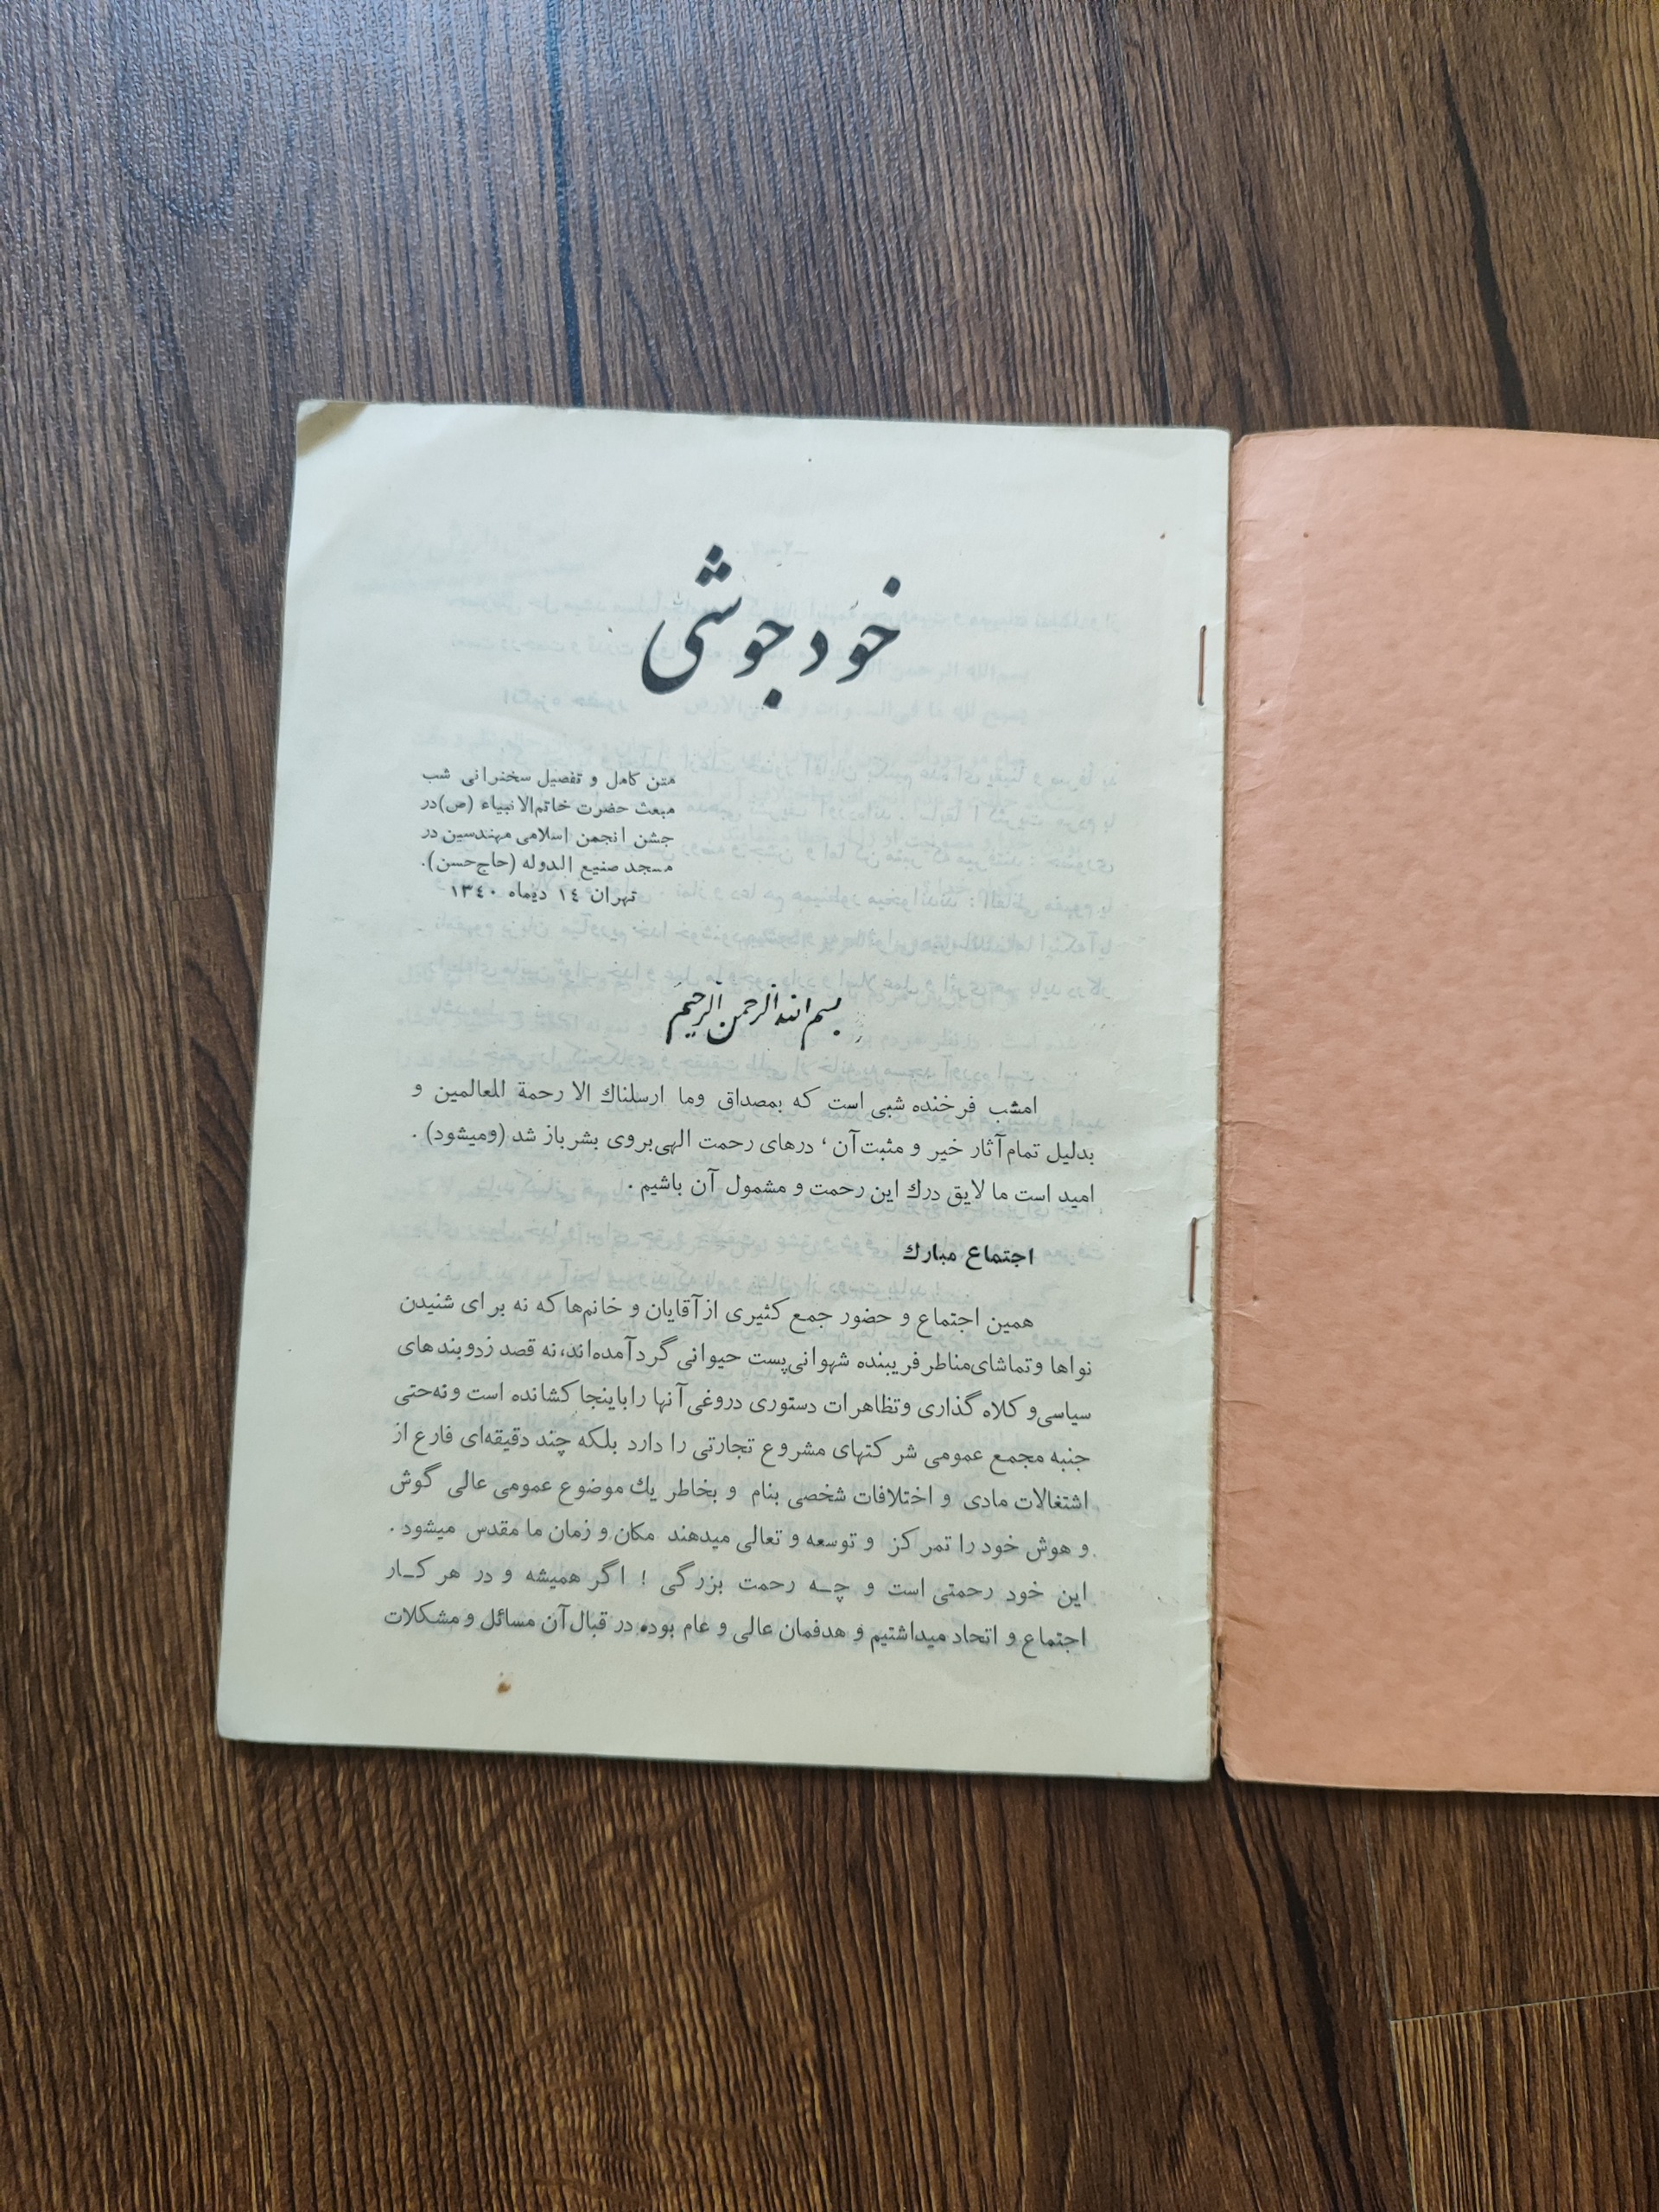 خودجوشی
متن کامل و تفصیل سخنرانی شب
مبعث حضرت خاتم‌الانبیاء (ص) در
جشن انجمن اسلامی مهندسین در
مسجد صنیع الدوله (حاج حسن).
تهران ١٤ دیماه ١٣٤٠
بسم الله الرحمن الرحیم
امشب فرخنده شبی است که بمصداق وما ارسلناك الا رحمة للعالمین و
بدلیل تمام آثار خیر و مثبت آن ، درهای رحمت الهی بروی بشر باز شد (ومیشود) .
امید است ما لایق درك این رحمت و مشمول آن باشیم .
اجتماع مبارك
همین اجتماع و حضور جمع کثیری از آقایان و خانم‌ها که نه برای شنیدن
نواها و تماشای مناظر فریبنده شهوانی پست حیوانی گرد آمده‌اند، نه قصد زدوبندهای
سیاسی و کلاه گذاری وتظاهرات دستوری دروغی آنها را باینجا کشانده است ونه حتی
جنبه مجمع عمومی شرکتهای مشروع تجارتی را دارد بلکه چند دقیقه‌ای فارغ از
اشتغالات مادی و اختلافات شخصی بنام و بخاطر یك موضوع عمومی عالی گوش
و هوش خود را تمرکز و توسعه و تعالی میدهند مکان و زمان ما مقدس میشود .
این خود رحمتی است و چـه رحمت بزرگی ! اگر همیشه و در هر کـار
اجتماع و اتحاد میداشتیم و هدفمان عالی و عام بوده در قبال آن مسائل و مشکلات